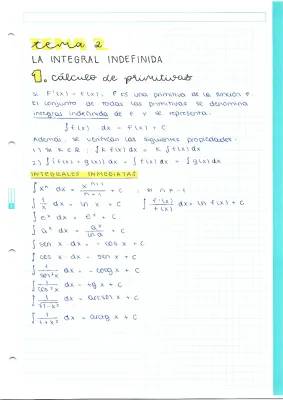 tema 2
LA INTEGRAL INDEFINIDA
1. cálculo de primitivas
Si F'(x) = f(x), F es una primitiva de la función f.
El conjunto de todas las primitivas se denomina
integral indefinida de f y se representa:
∫ f(x) dx = F(x) + C
Además, se verifican las siguientes propiedades:
1) Si K ∈ R; ∫ K f(x) dx = K ∫ f(x) dx
2) ∫ (f(x) + g(x)) dx = ∫ f(x) dx + ∫ g(x) dx
INTEGRALES INMEDIATAS
∫ xⁿ dx = xⁿ⁺¹/n+1 + C ; si n ≠ -1
∫ 1/x dx = ln x + C ∫ f'(x)/f(x) dx = ln f(x) + C
∫ eˣ dx = eˣ + C
∫ aˣ dx = aˣ/ln a + C
∫ sen x dx = - cos x + C
∫ cos x dx = sen x + C
∫ 1/sen²x dx = - cotg x + C
∫ 1/cos²x dx = tg x + C
∫ 1/√1-x² dx = arcsen x + C
∫ 1/1+x² dx = arctg x + C